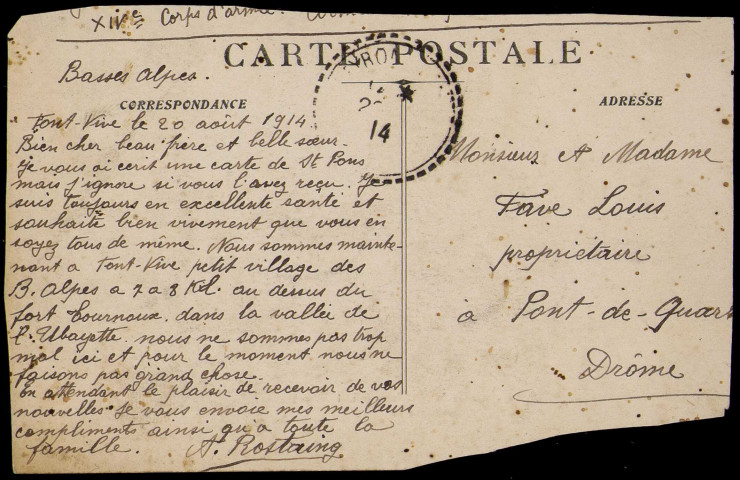 XIVe Corps d'armée.
CARTE POSTALE
Basses Alpes.
CORRESPONDANCE
Font-Vive le 20 août 1914.
Bien cher beau frère et belle sœur.
Je vous ai ecrit une carte de St Pons
mais j'ignore si vous l'avez reçu. Je
suis toujours en excellente santé et
souhaite bien vivement que vous en
soyez tous de même. Nous sommes mainte-
nant a Font-Vive petit village des
B. Alpes a 7 a 8 Kil. au dessus du
fort Tournoux. dans la vallée de
l'Ubayette. nous ne sommes pas trop
mal ici et pour le moment nous ne
faisons pas grand chose.
En attendant le plaisir de recevoir de vos
nouvelles. Je vous envoie mes meilleurs
compliments ainsi qu'a toute la
famille. A. Rostaing
14
ADRESSE
Monsieur et Madame
Fave Louis
propriétaire
à Pont-de-Quart
Drôme